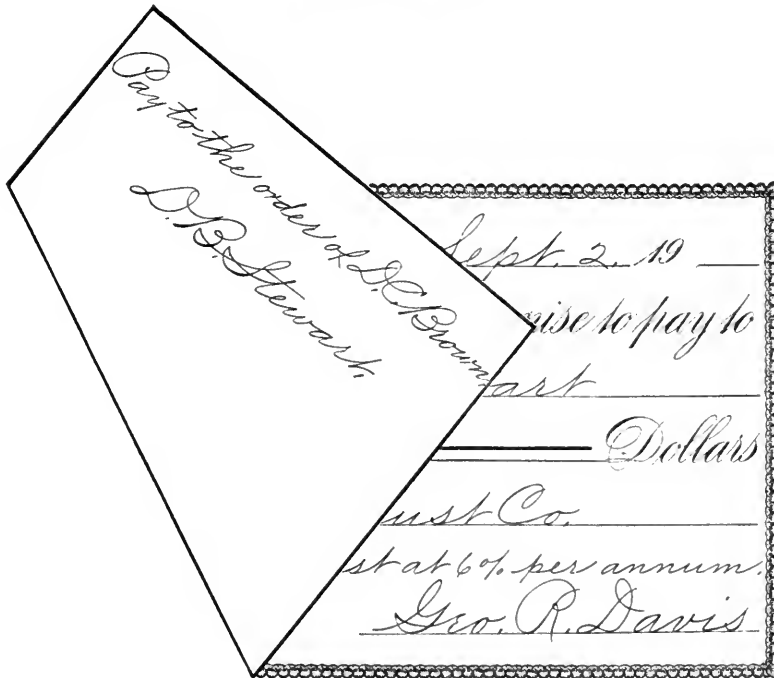 Pay to the order of D.C. Brown
D. B. Stewart.
Sept. 2, 19
nise to pay to
art
Dollars
ust Co.
st at 6% per annum.
Geo. R. Davis